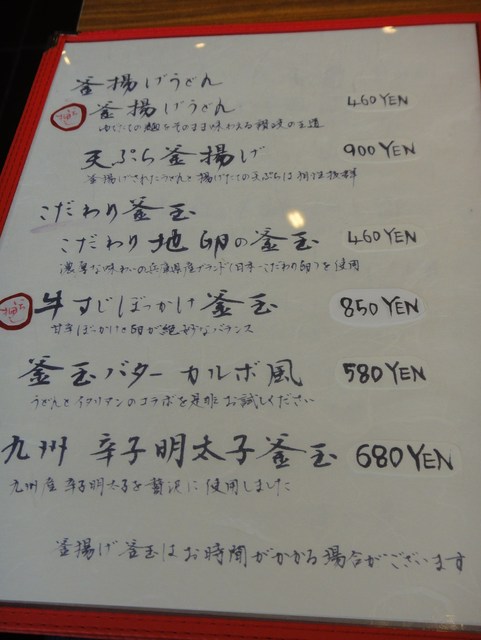 釜揚げうどん
釜揚げうどん 460 YEN
ゆでたての麺をそのまま味わえる讃岐の王道
天ぷら釜揚げ 900 YEN
釜揚げされたうどんと揚げたての天ぷらは相性抜群
こだわり釜玉
こだわり地卵の釜玉 460 YEN
濃厚な味わいの兵庫県産ブランド(日本一こだわり卵)を使用
牛すじぼっかけ釜玉 850 YEN
甘辛ぼっかけと卵が絶妙なバランス
釜玉バターカルボ風 580 YEN
うどんとイタリアンのコラボを是非お試しください
九州 辛子明太子釜玉 680 YEN
九州産辛子明太子を贅沢に使用しました
釜揚げ釜玉はお時間がかかる場合がございます